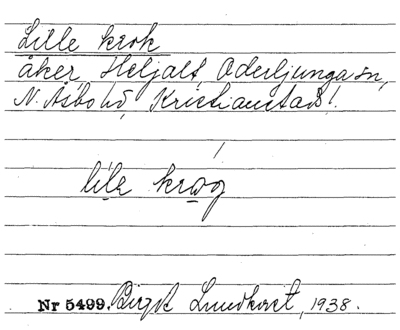 Lille krok
åker, Heljalt, Oderljunga sn,
N. Åsbo hd, Kristianstads l.
lile krog
Nr 5499. Birgit Lundkvist, 1938.